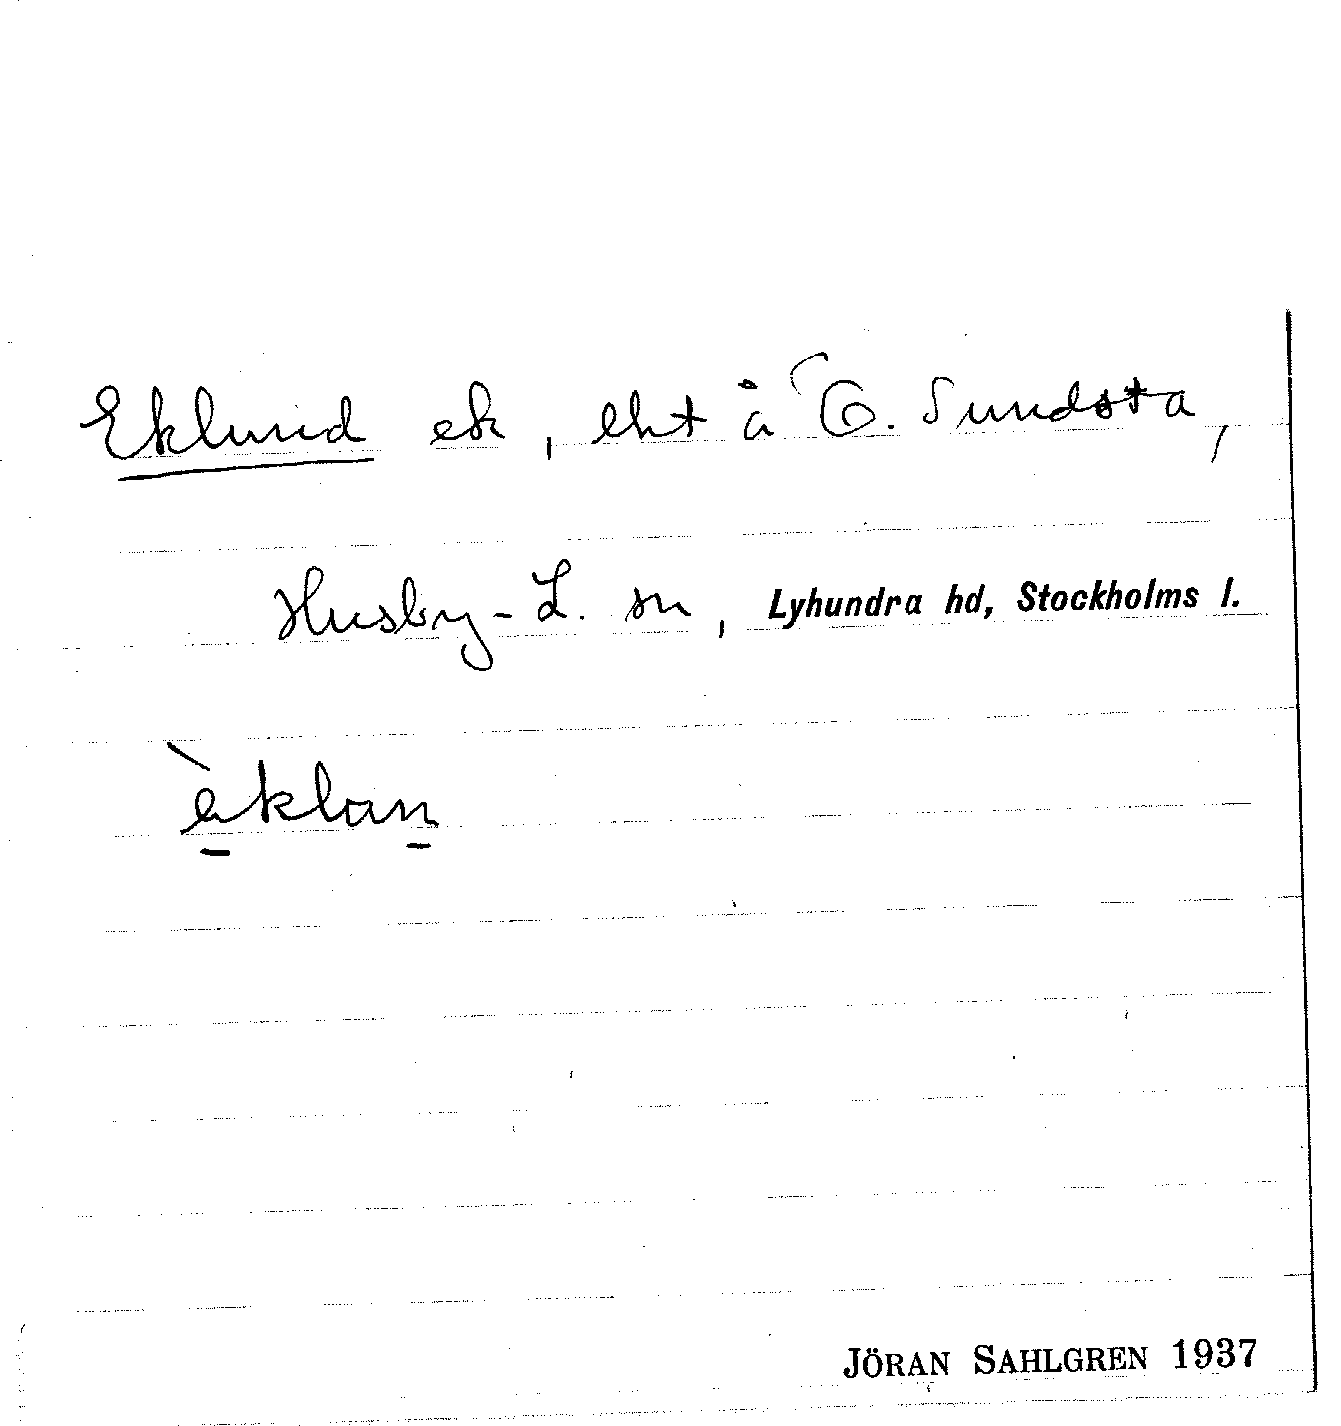 Eklund ek, lht å Ö. Sundsta,
Husby-L. sn, Lyhundra hd, Stockholms l.
èklan
JÖRAN SAHLGREN 1937